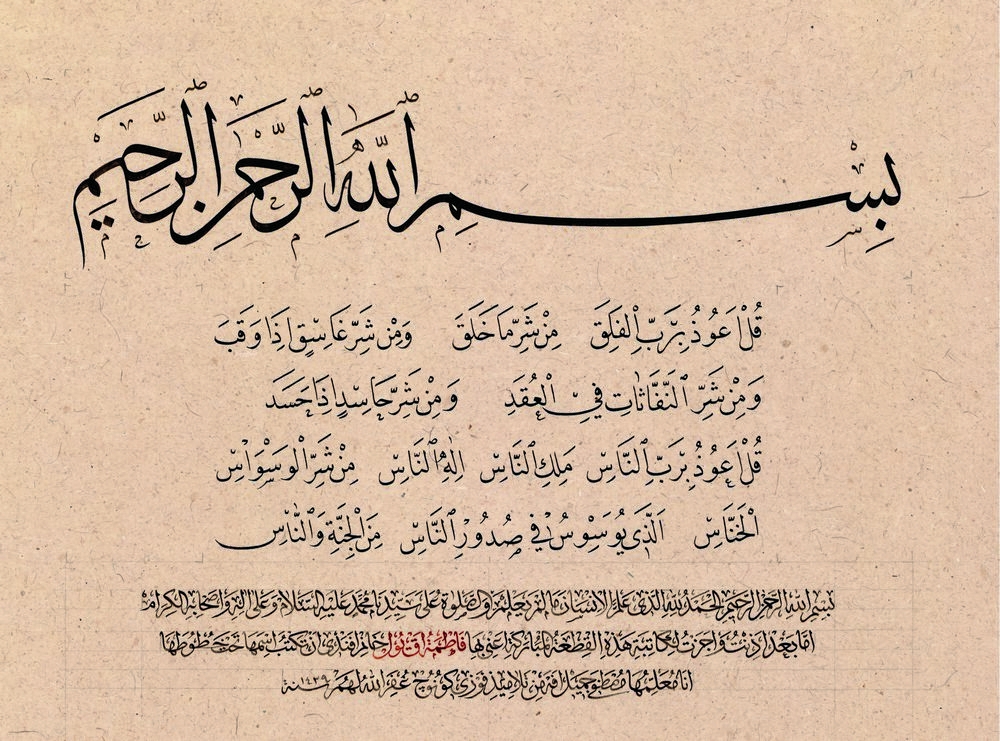 بِسْمِ ٱللّٰهِ ٱلرَّحْمٰنِ ٱلرَّحِيمِ
قُلْ اَعُوذُ بِرَبِّ ٱلْفَلَقِ مِنْ شَرِّ مَا خَلَقَ وَمِنْ شَرِّ غَاسِقٍ اِذَا وَقَبَ
وَمِنْ شَرِّ ٱلنَّفَّاثَاتِ فِي ٱلْعُقَدِ وَمِنْ شَرِّ حَاسِدٍ اِذَا حَسَدَ
قُلْ اَعُوذُ بِرَبِّ ٱلنَّاسِ مَلِكِ ٱلنَّاسِ اِلٰهِ ٱلنَّاسِ مِنْ شَرِّ ٱلْوَسْوَاسِ
ٱلْخَنَّاسِ ٱلَّذِي يُوَسْوِسُ فِي صُدُورِ ٱلنَّاسِ مِنَ ٱلْجِنَّةِ وَٱلنَّاسِ
بسم الله الرحمن الرحيم الحمد لله الذي علم الانسان ما لم يعلم والصلوة على سيدنا محمد عليه السلام وعلى اله واصحابه الكرام
اما بعد اذنت واجزت لكاتبة هذه القطعة المباركة اعني بها فاطمة خانم افندي ان تكتب اسمها تحت خطوطها
انا معلمها من تلاميذ غفر الله لهم سنة ١٤٢٩